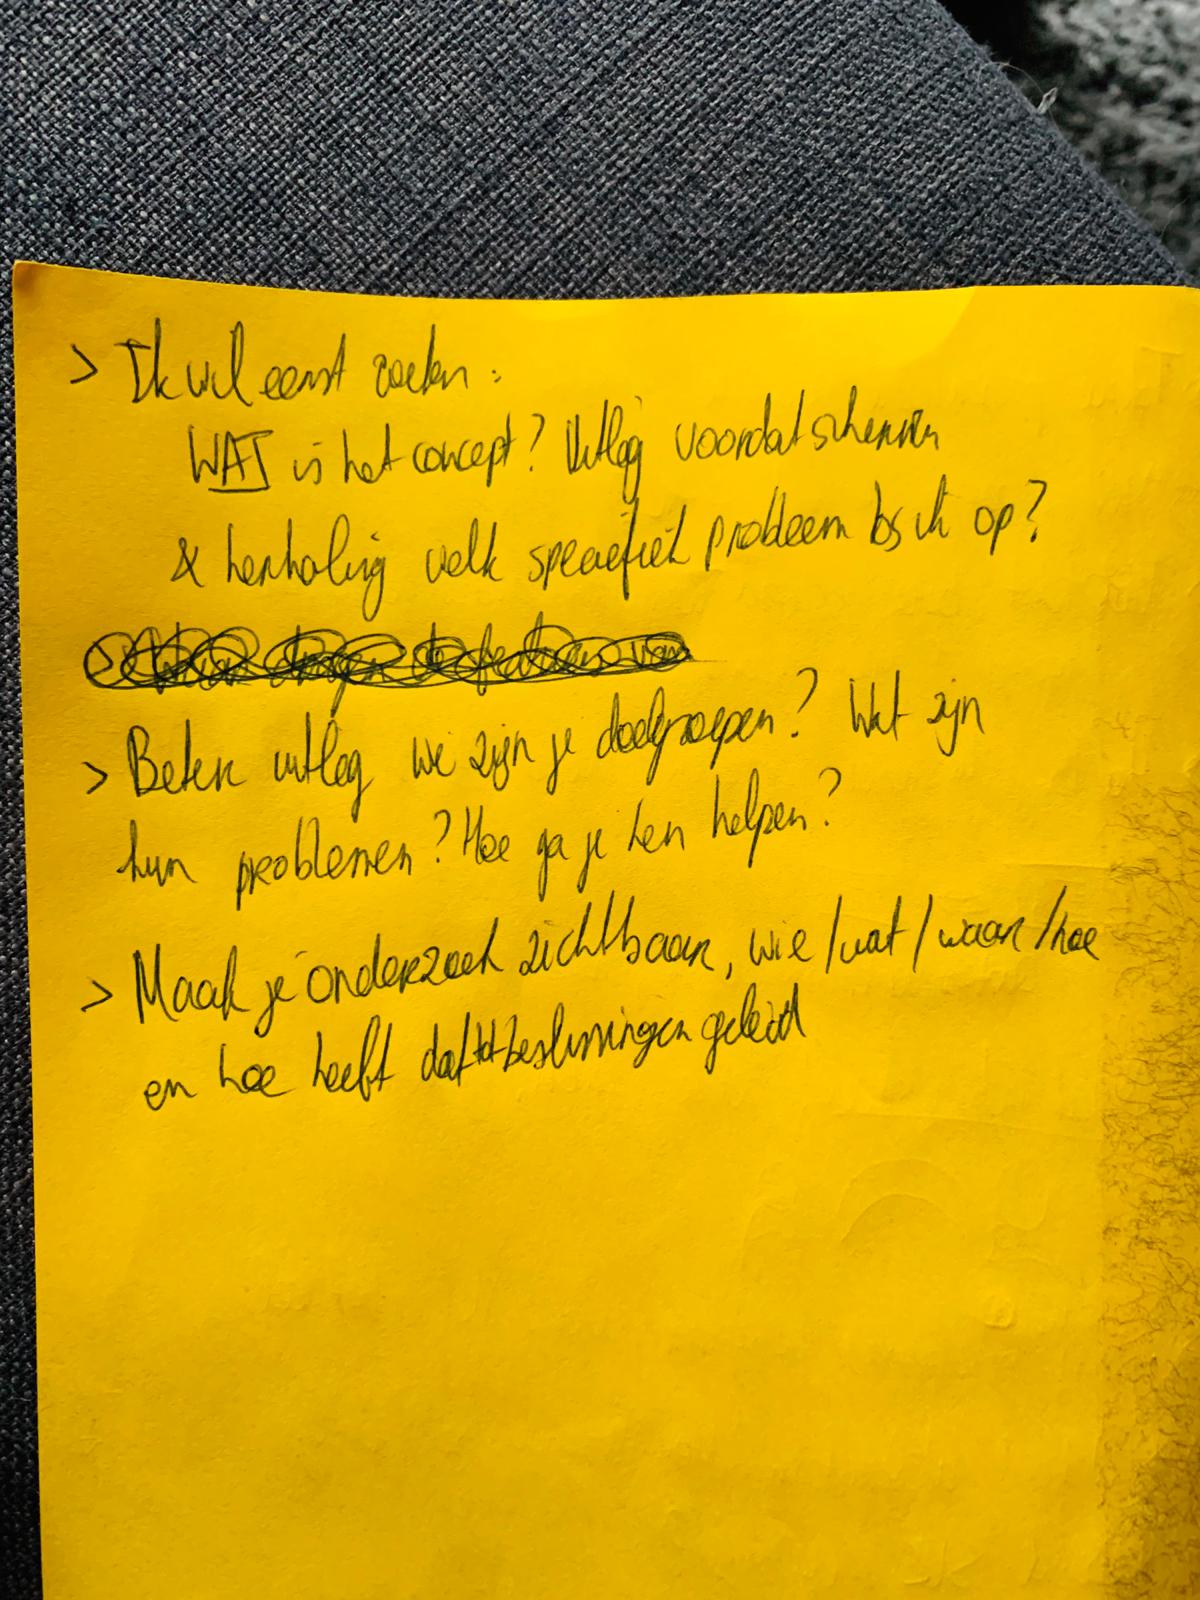 > Ik wil eerst zoeken:
WAT is het concept? Uitleg voordat schermen
& herhaling welk specifiek probleem los ik op?
> Beter uitleg wie zijn je doelgroepen? Wat zijn
hun problemen? Hoe ga je hen helpen?
> Maak je onderzoek zichtbaar, wie/wat/waar/hoe
en hoe heeft dat tot beslissingen geleid